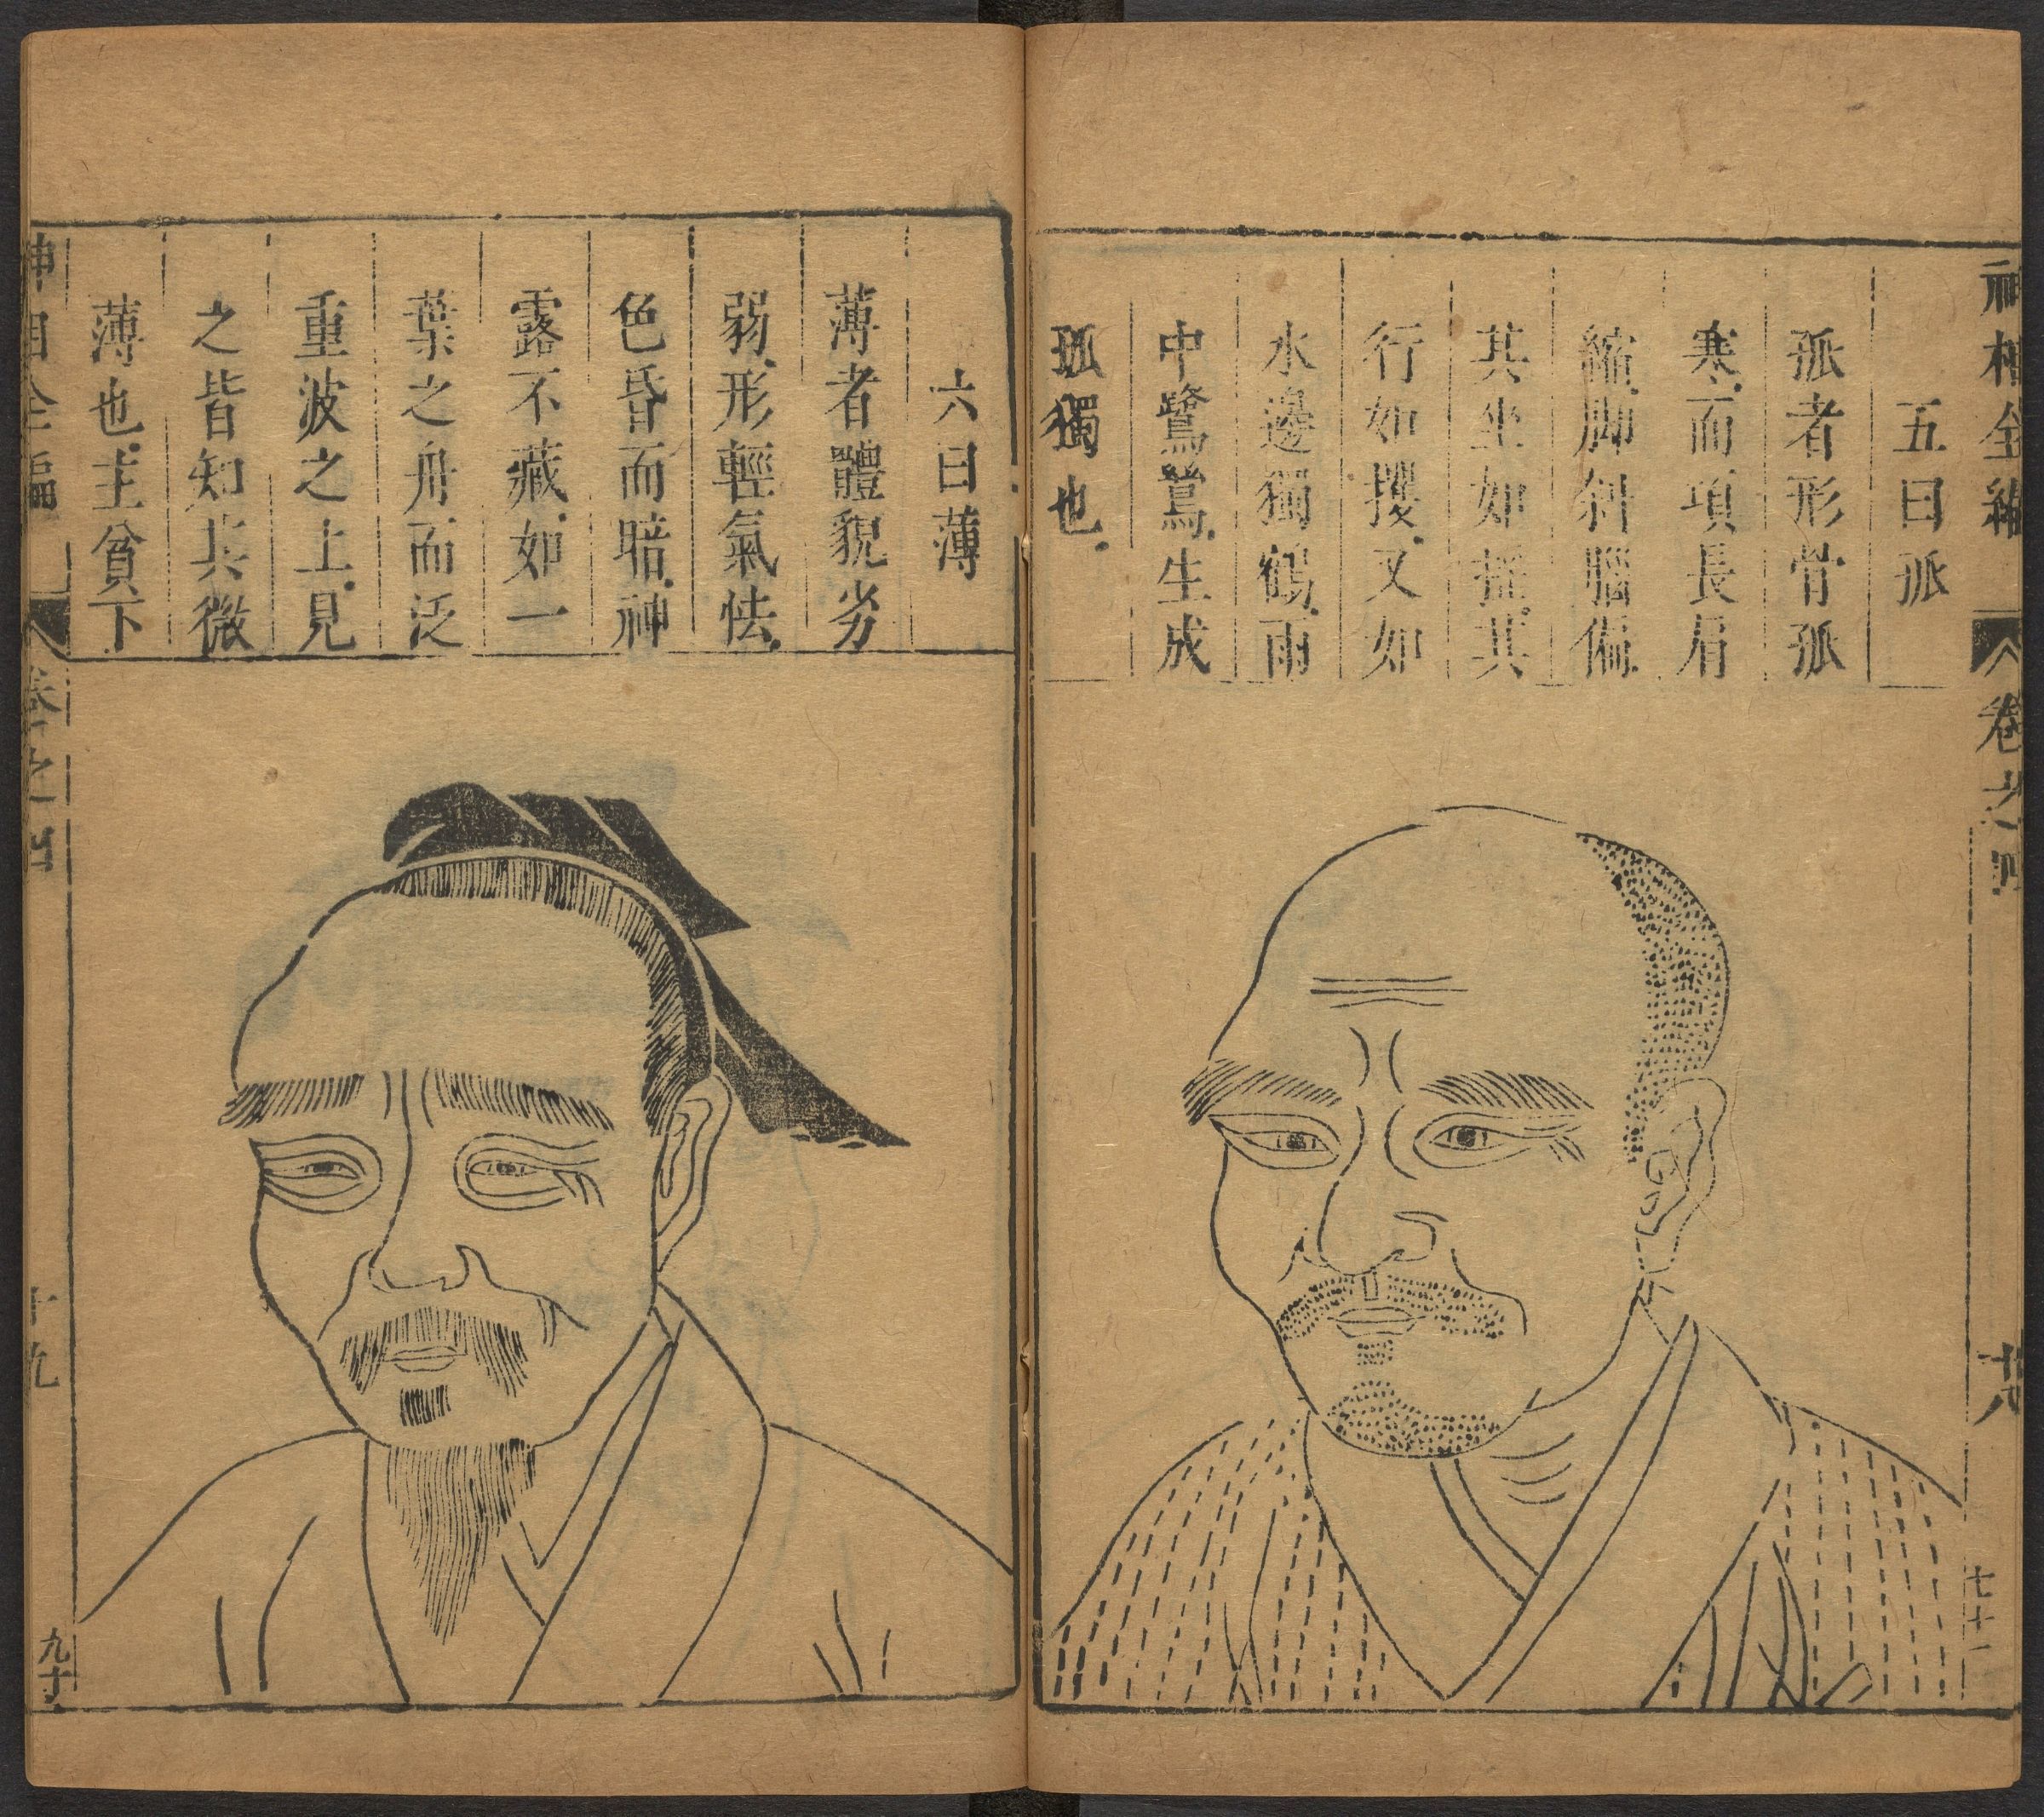 神相全編
卷之四
十八
七十一
五曰孤
孤者形骨孤
寒。而項長肩
縮。脚斜腦偏。
其坐如摇。其
行如攫。又如
水邊獨鶴。雨
中鷺鷥。生成
孤獨也。
六曰薄
薄者體貌劣
弱。形輕氣怯。
色昏而暗。神
露不藏。如一
葉之舟而泛
重波之上。見
之皆知其微
薄也。主貧下
神相全編
卷之四
十九
九十